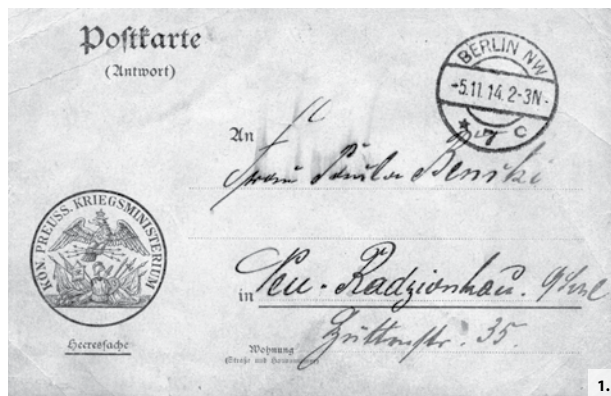 Postkarte
(Antwort)
BERLIN NW
-5.11.14.2-3N-
* 7 c
An
Frau Paula Benski
KÖN. PREUSS. KRIEGSMINISTERIUM
in Neu-Radzionkau.
Hüttenstr. 35.
Heeressache
Wohnung
(Straße und Hausnummer)
1.